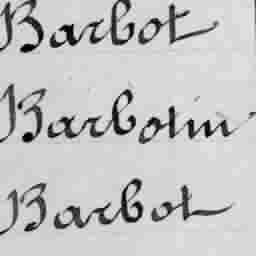 Barbot
Barbotin
Barbot